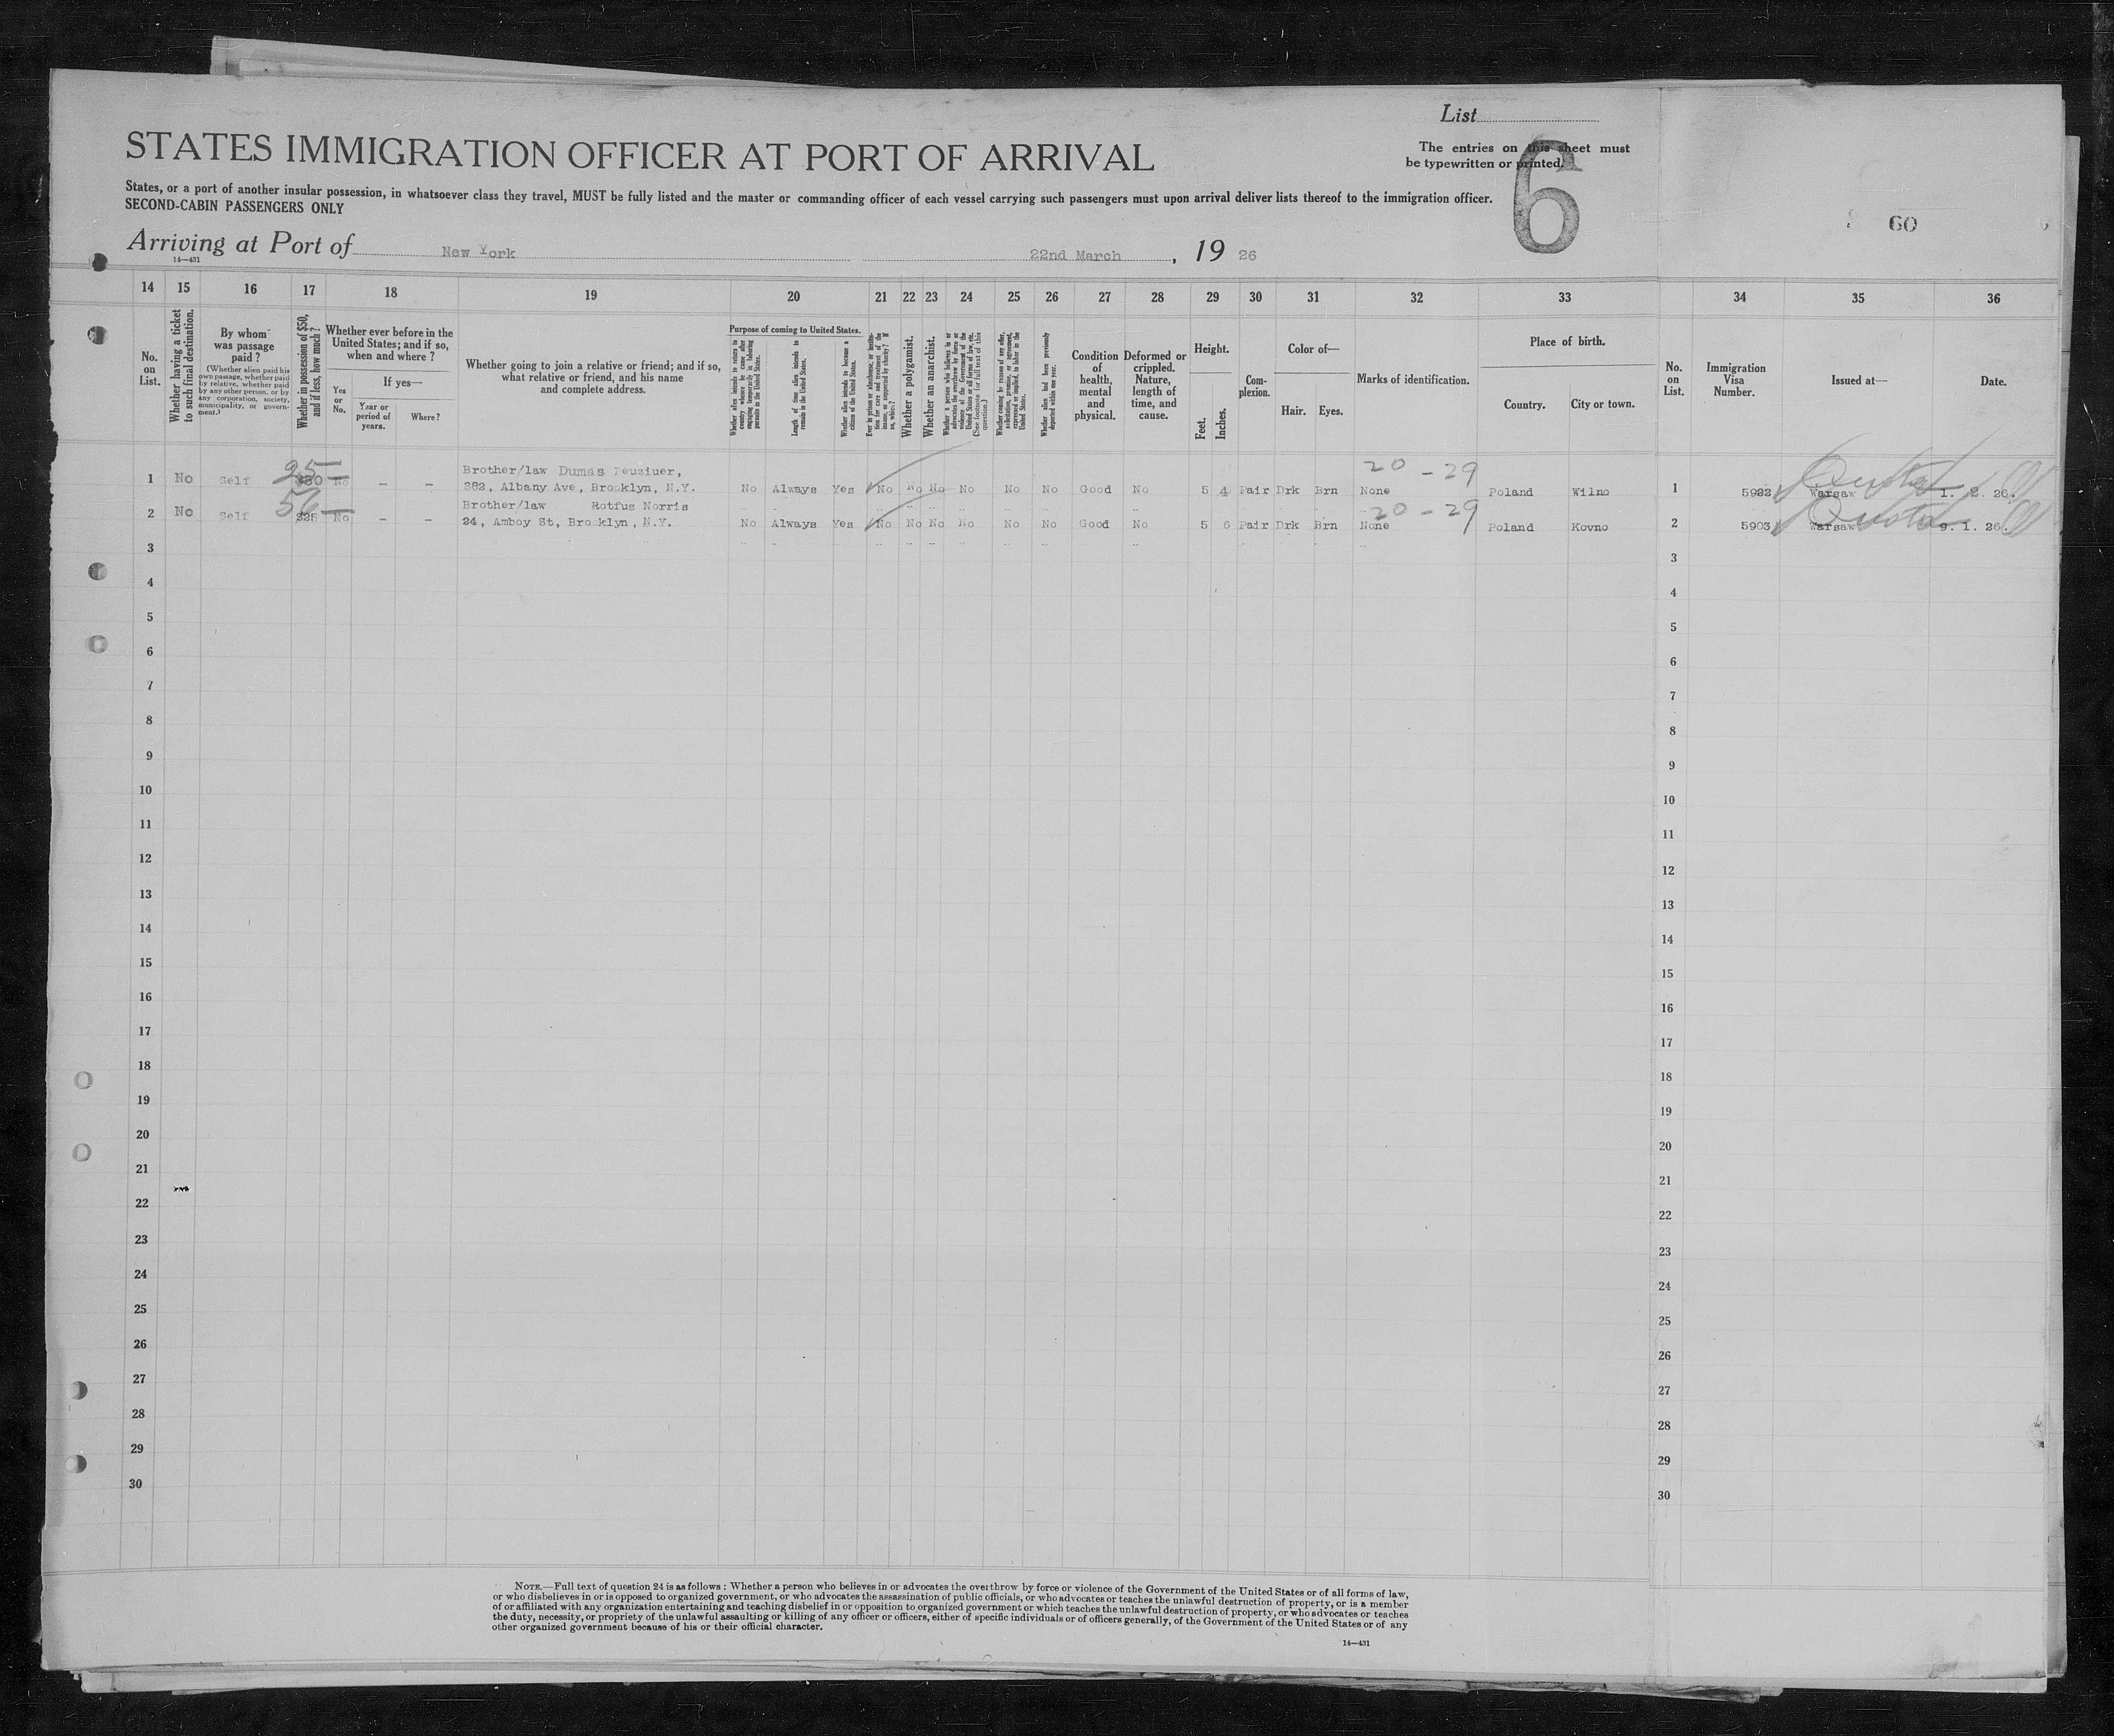 List
STATES IMMIGRATION OFFICER AT PORT OF ARRIVAL
The entries on this sheet must
be typewritten or printed.
6
States, or a port of another insular possession, in whatsoever class they travel, MUST be fully listed and the master or commanding officer of each vessel carrying such passengers must upon arrival deliver lists thereof to the immigration officer.
SECOND-CABIN PASSENGERS ONLY
60
Arriving at Port of New York 22nd March, 19 26
14—431
14 15 16 17 18 19 20 21 22 23 24 25 26 27 28 29 30 31 32 33 34 35 36
No. on List.
Whether having a ticket to such final destination.
By whom was passage paid?
(Whether alien paid his own passage, whether paid by relative, whether paid by any other person, or by any corporation, society, municipality, or government.)
Whether in possession of $50, and if less, how much?
Whether ever before in the United States; and if so, when and where?
Yes or No.
If yes—
Year or period of years.
Where?
Whether going to join a relative or friend; and if so, what relative or friend, and his name and complete address.
Purpose of coming to United States.
Whether alien intends to return to country whence he came after engaging temporarily in laboring pursuits in the United States.
Length of time alien intends to remain in the United States.
Whether alien intends to become a citizen of the United States.
Ever in prison or almshouse, or institution for care and treatment of the insane, or supported by charity? If so, which?
Whether a polygamist.
Whether an anarchist.
Whether a person who believes in or advocates the overthrow by force or violence of the Government of the United States or all forms of law, etc. (See footnote for full text of this question.)
Whether coming by reason of any offer, solicitation, promise, or agreement, expressed or implied, to labor in the United States.
Whether alien had been previously deported within one year.
Condition of health, mental and physical.
Deformed or crippled. Nature, length of time, and cause.
Height.
Feet.
Inches.
Complexion.
Color of—
Hair. Eyes.
Marks of identification.
Place of birth.
Country. City or town.
No. on List.
Immigration Visa Number.
Issued at—
Date.
25 20 - 29 Quota
Brother/law Dumas
1 No Self No – – 382, Albany Ave, Brooklyn, N.Y. No Always Yes No No No No No No Good No 5 4 Fair Drk Brn None Poland Wilno 1 5982 Warsaw 1. 2. 26.
56 20 - 29 Quota
Brother/law Rotfus Norris
2 No Self No – – 24, Amboy St, Brooklyn, N.Y. No Always Yes No No No No No No Good No 5 6 Fair Drk Brn None Poland Kovno 2 5903 Warsaw 9. 1. 26.
3 3
4 4
5 5
6 6
7 7
8 8
9 9
10 10
11 11
12 12
13 13
14 14
15 15
16 16
17 17
18 18
19 19
20 20
21 21
22 22
23 23
24 24
25 25
26 26
27 27
28 28
29 29
30 30
NOTE.—Full text of question 24 is as follows: Whether a person who believes in or advocates the overthrow by force or violence of the Government of the United States or of all forms of law,
or who disbelieves in or is opposed to organized government, or who advocates the assassination of public officials, or who advocates or teaches the unlawful destruction of property, or is a member
of or affiliated with any organization entertaining and teaching disbelief in or opposition to organized government or which teaches the unlawful destruction of property, or who advocates or teaches
the duty, necessity, or propriety of the unlawful assaulting or killing of any officer or officers, either of specific individuals or of officers generally, of the Government of the United States or of any
other organized government because of his or their official character.
14—431